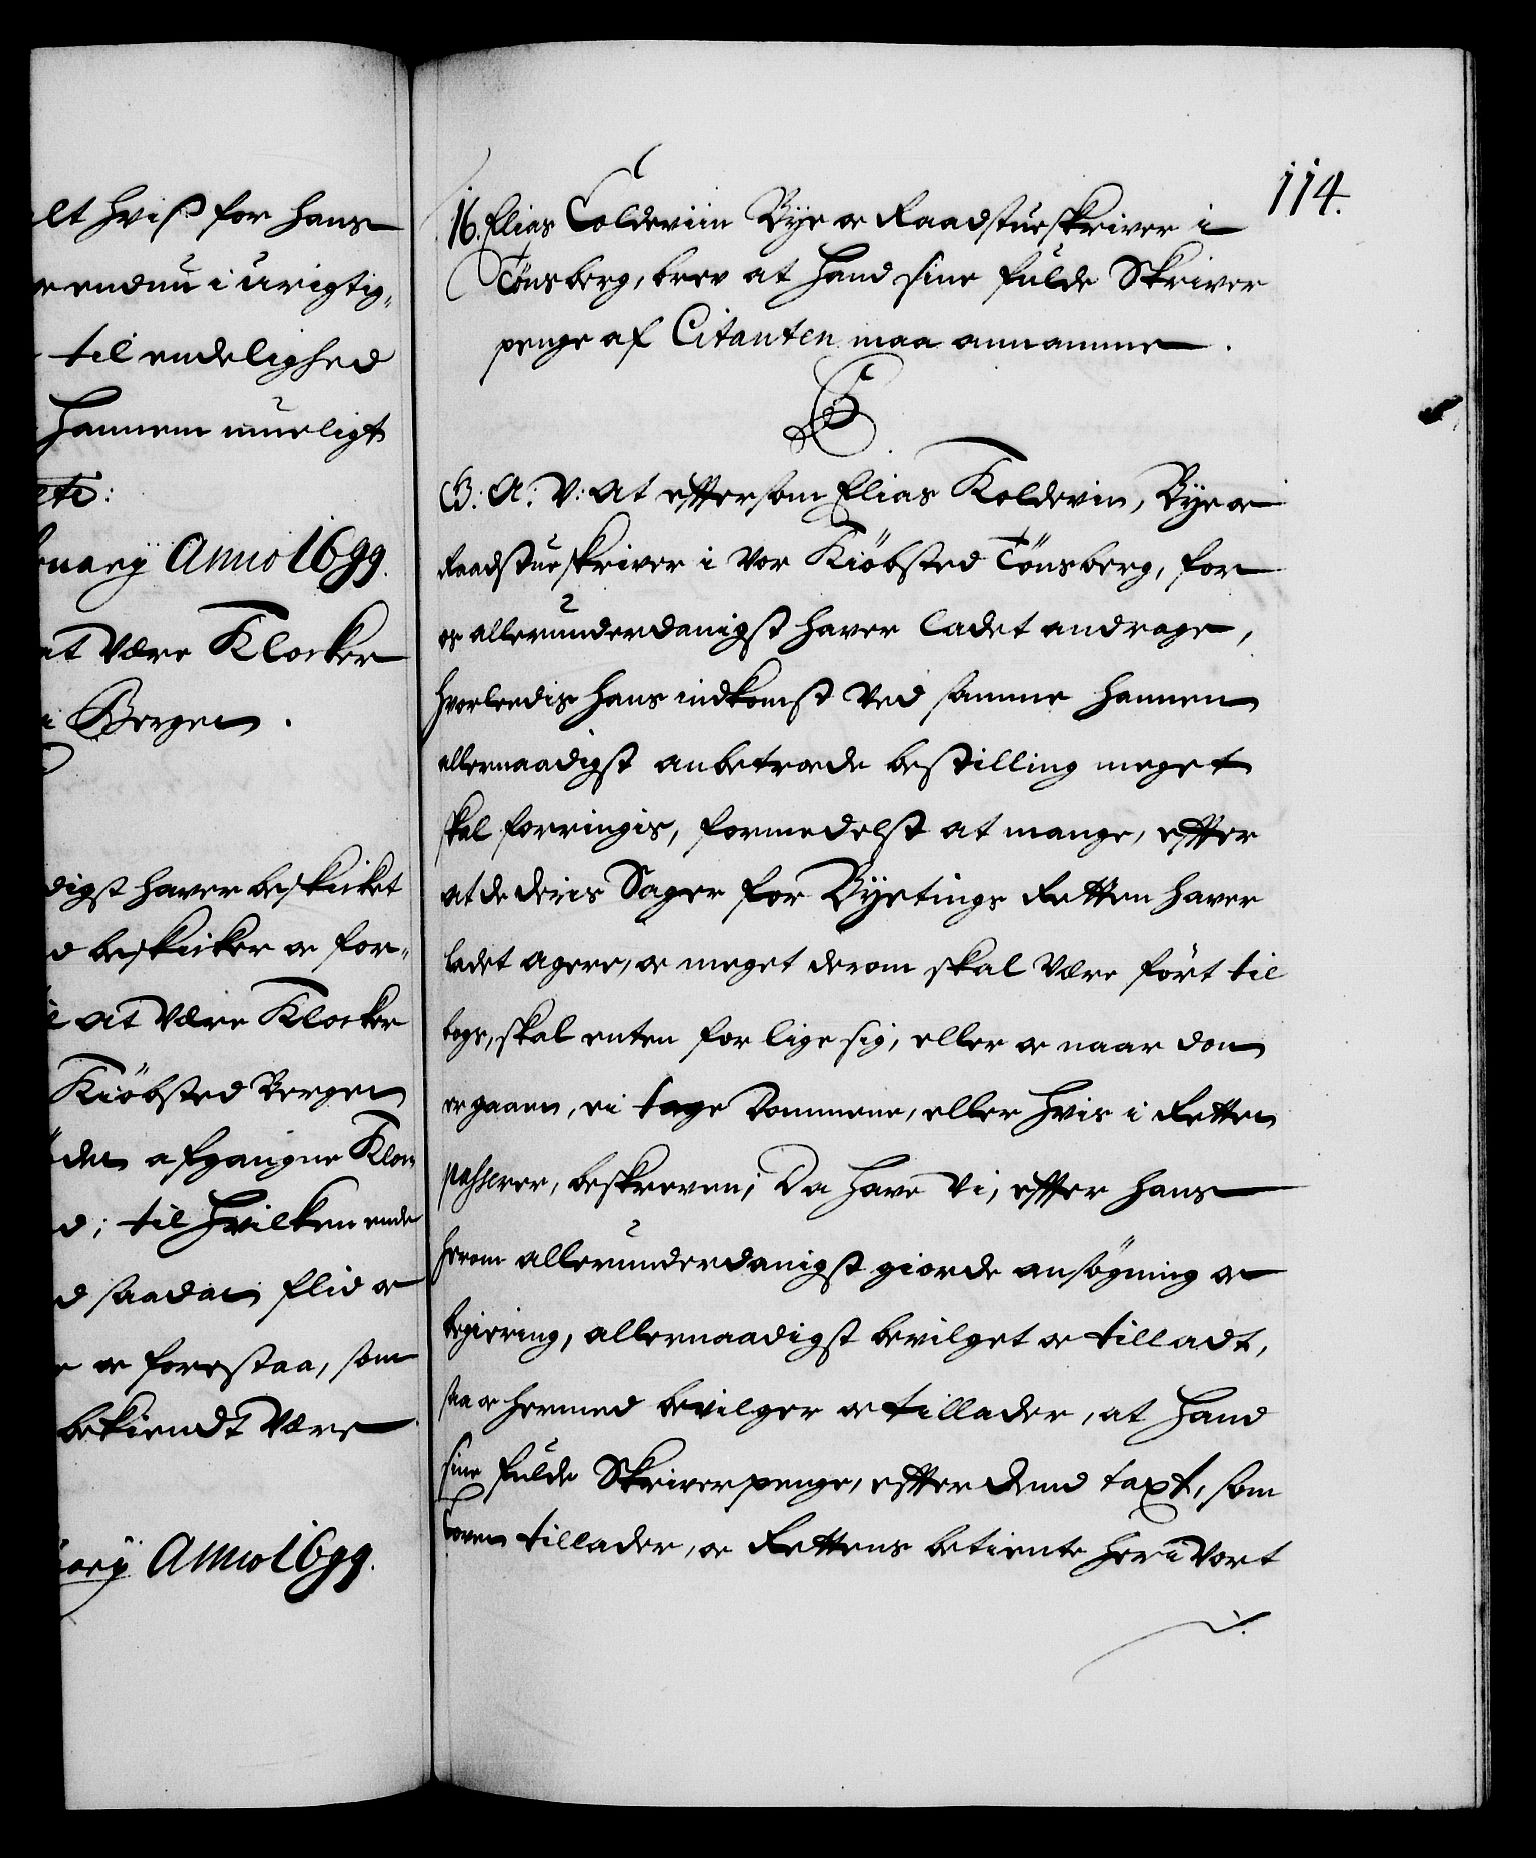 alt hviß for hans
endnu i urigtig,
til endelighed
hannem mueligt
etc:
bruarij Anno 1699.
at være Klocker
i Bergen.
digst haver beskicket
beskicker og for,
at være Klocker
Kiöbsted Bergen
den afgangne Kloc,
til hvilken ende
d saadan flid og
og forestaa, som
bekiendt være
arij Anno 1699.
114.
16. Elias Coldeviin Bye og Raadstueskriver i
Tönsberg, brev at hand sine fulde Skriver
penge af Citanten maa annamme.
G. A. V: At eftersom Elias Koldevin, Bye og
Raadstueskriver i Vor Kiöbsted Tönsberg, for
os allerunderdanigst haver ladet andrage,
hvorleedis hans indkomst ved samme hannem
allernaadigst anbetroede bestilling meget
skal forringis, formedelst at mange, efter
at de deris Sager for Byetings Retten haver
ladet agere, og meget derom skal være fört til
bogs, skal enten forlige sig, eller og naar dom
er gaaen, ei tage Dommene, eller hvis i Retten
passerer, beskreven; Da have Vi, efter hans
herom allerunderdanigst giorde ansögning og
begiering, allernaadigst bevilget og tilladt,
saa og hermed bevilger og tillader, at hand
sine fulde Skriverpenge, efter dend taxt, som
Loven tillader, og Rettens betiente her i Vort